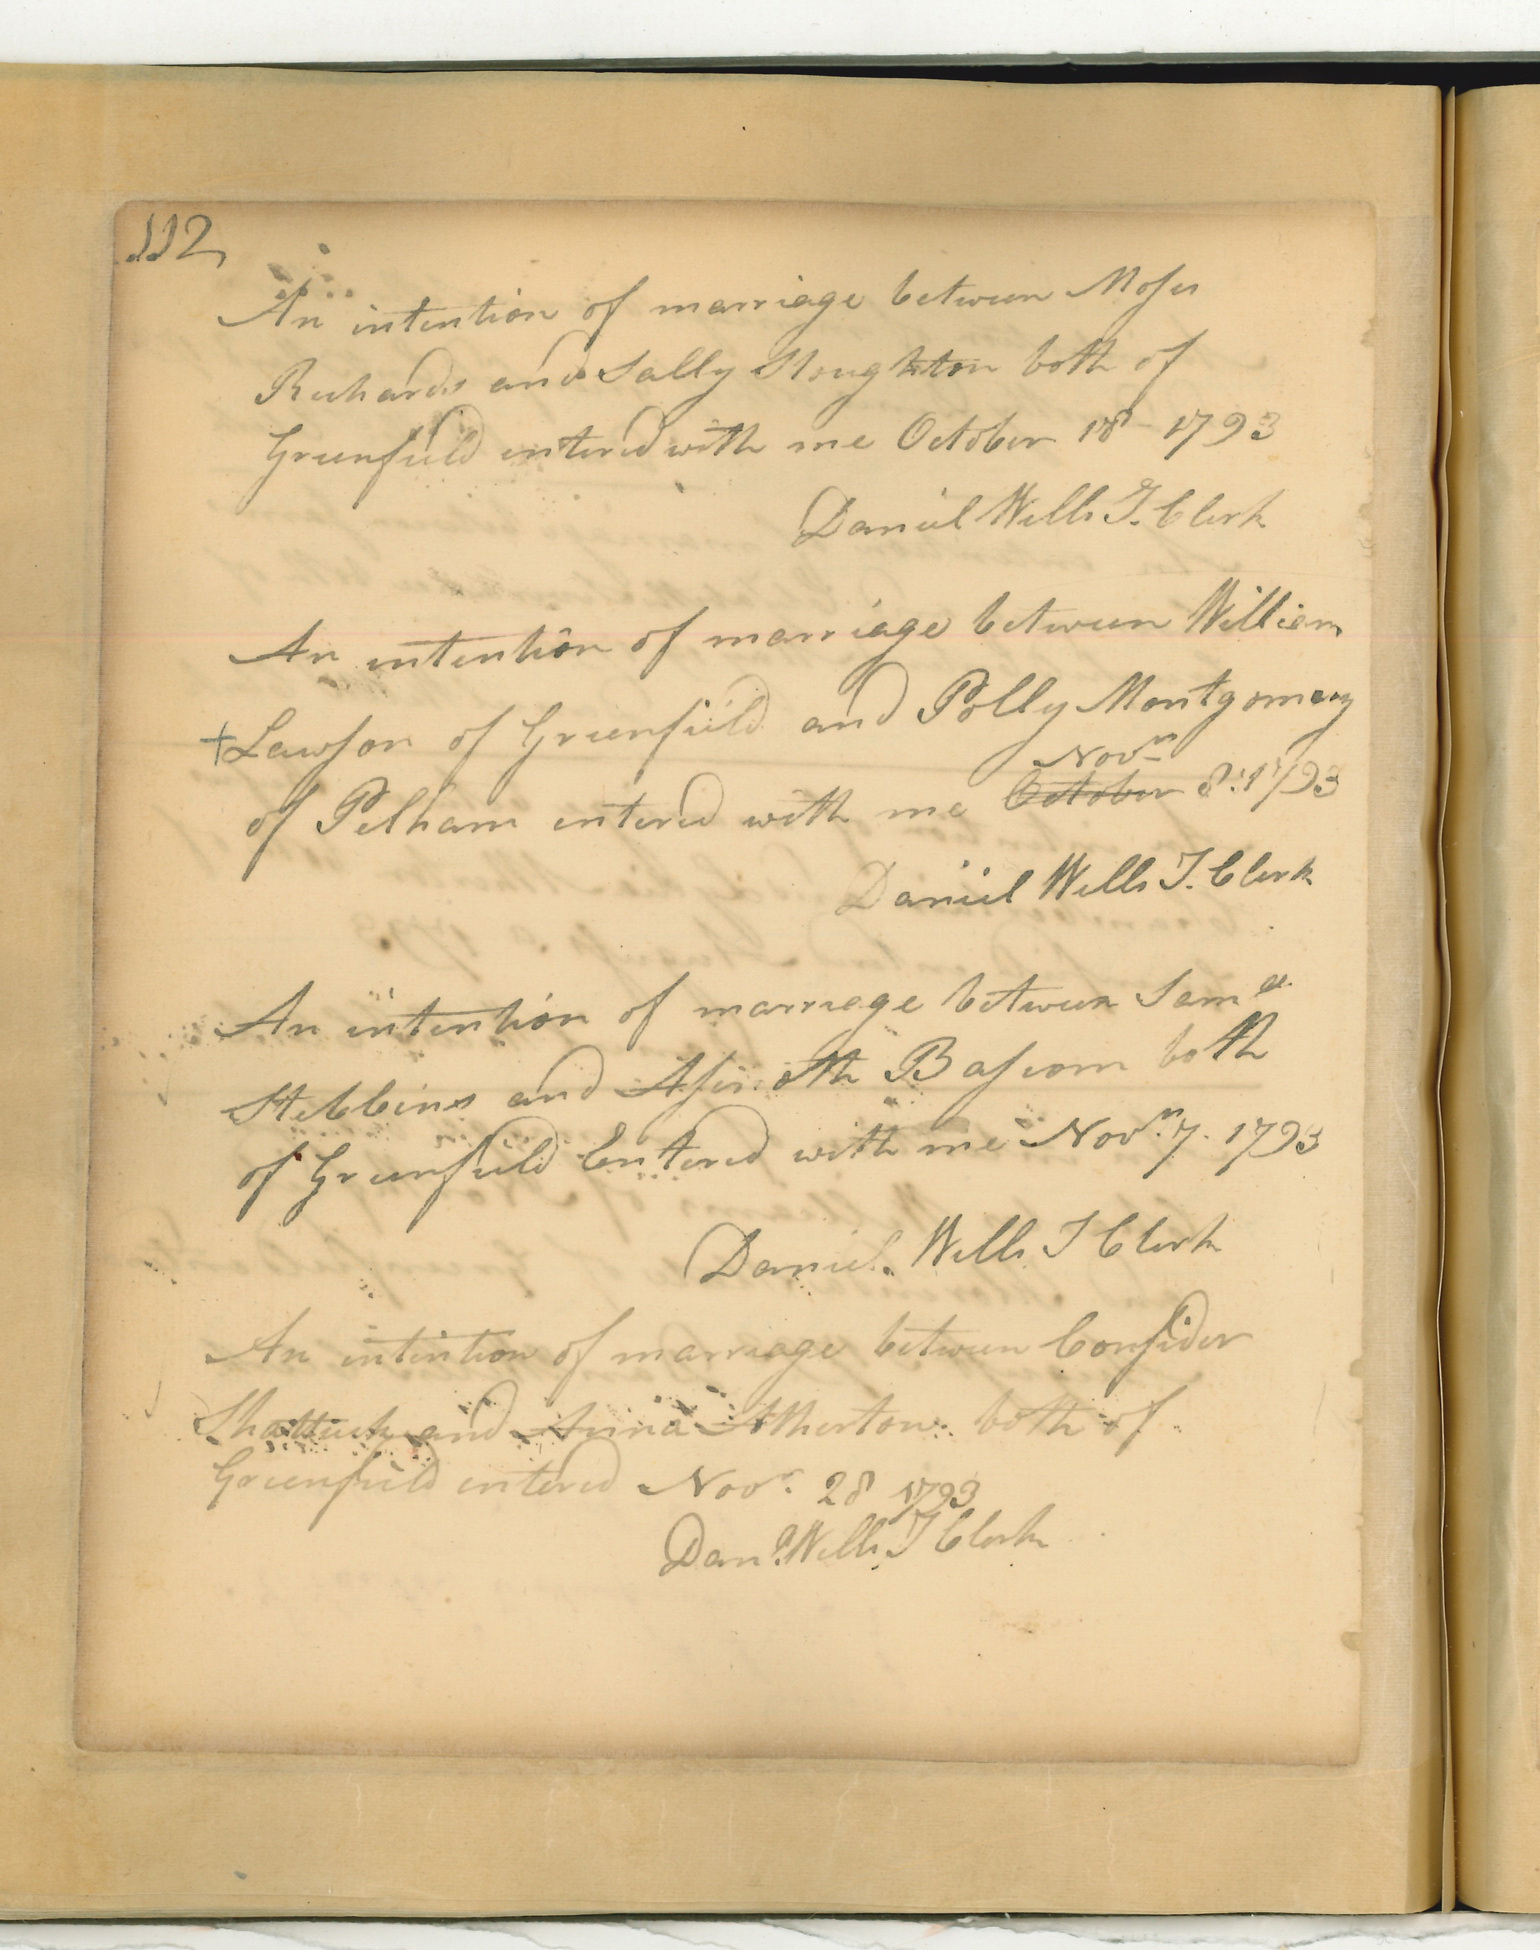 112
An intention of marriage between Moses
Richards and Sally Stoughton both of
Greenfield entered with me October 18 - 1793
Daniel Wells T. Clerk
An intention of marriage between William
+ Lawson of Greenfield and Polly Montgomery
Novr
of Pelham entered with me October 8. 1793
Daniel Wells T. Clerk
An intention of marriage between Saml
Stebbins and Asenoth Bascom both
of Greenfield Entered with me Novr. 7. 1793
Daniel Wells T Clerk
An intention of marriage between Consider
Shattuck and Anna Atherton both of
Greenfield entered Novr. 28 1793
Danl. Wells T Clerk